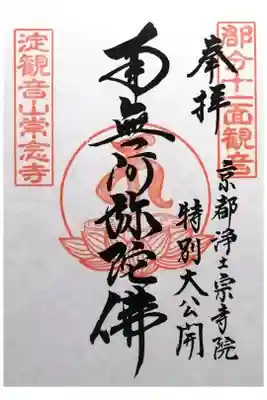 奉拝
郡分十一面観音
京都浄土宗寺院
特別大公開
南無阿弥陀佛
淀観音山常念寺